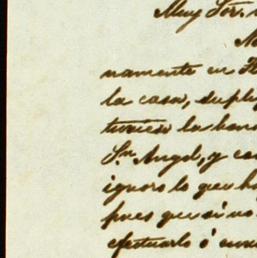 Muy Sor.
namente en
la casa, suplic
tuviese la bon
Sn. Angel, y co
ignoro lo que h
pues que si no
efectuarlo ó